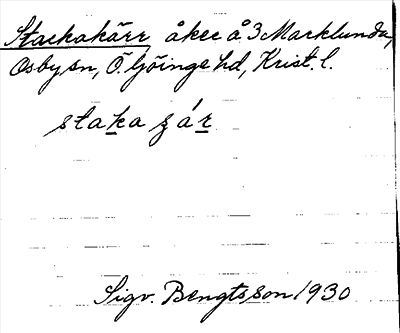 Stackakärr åker å 3 Marklunda,
Osby sn, Ö. Göinge hd, Krist. l.
staka ʒár
Sigv. Bengtsson 1930